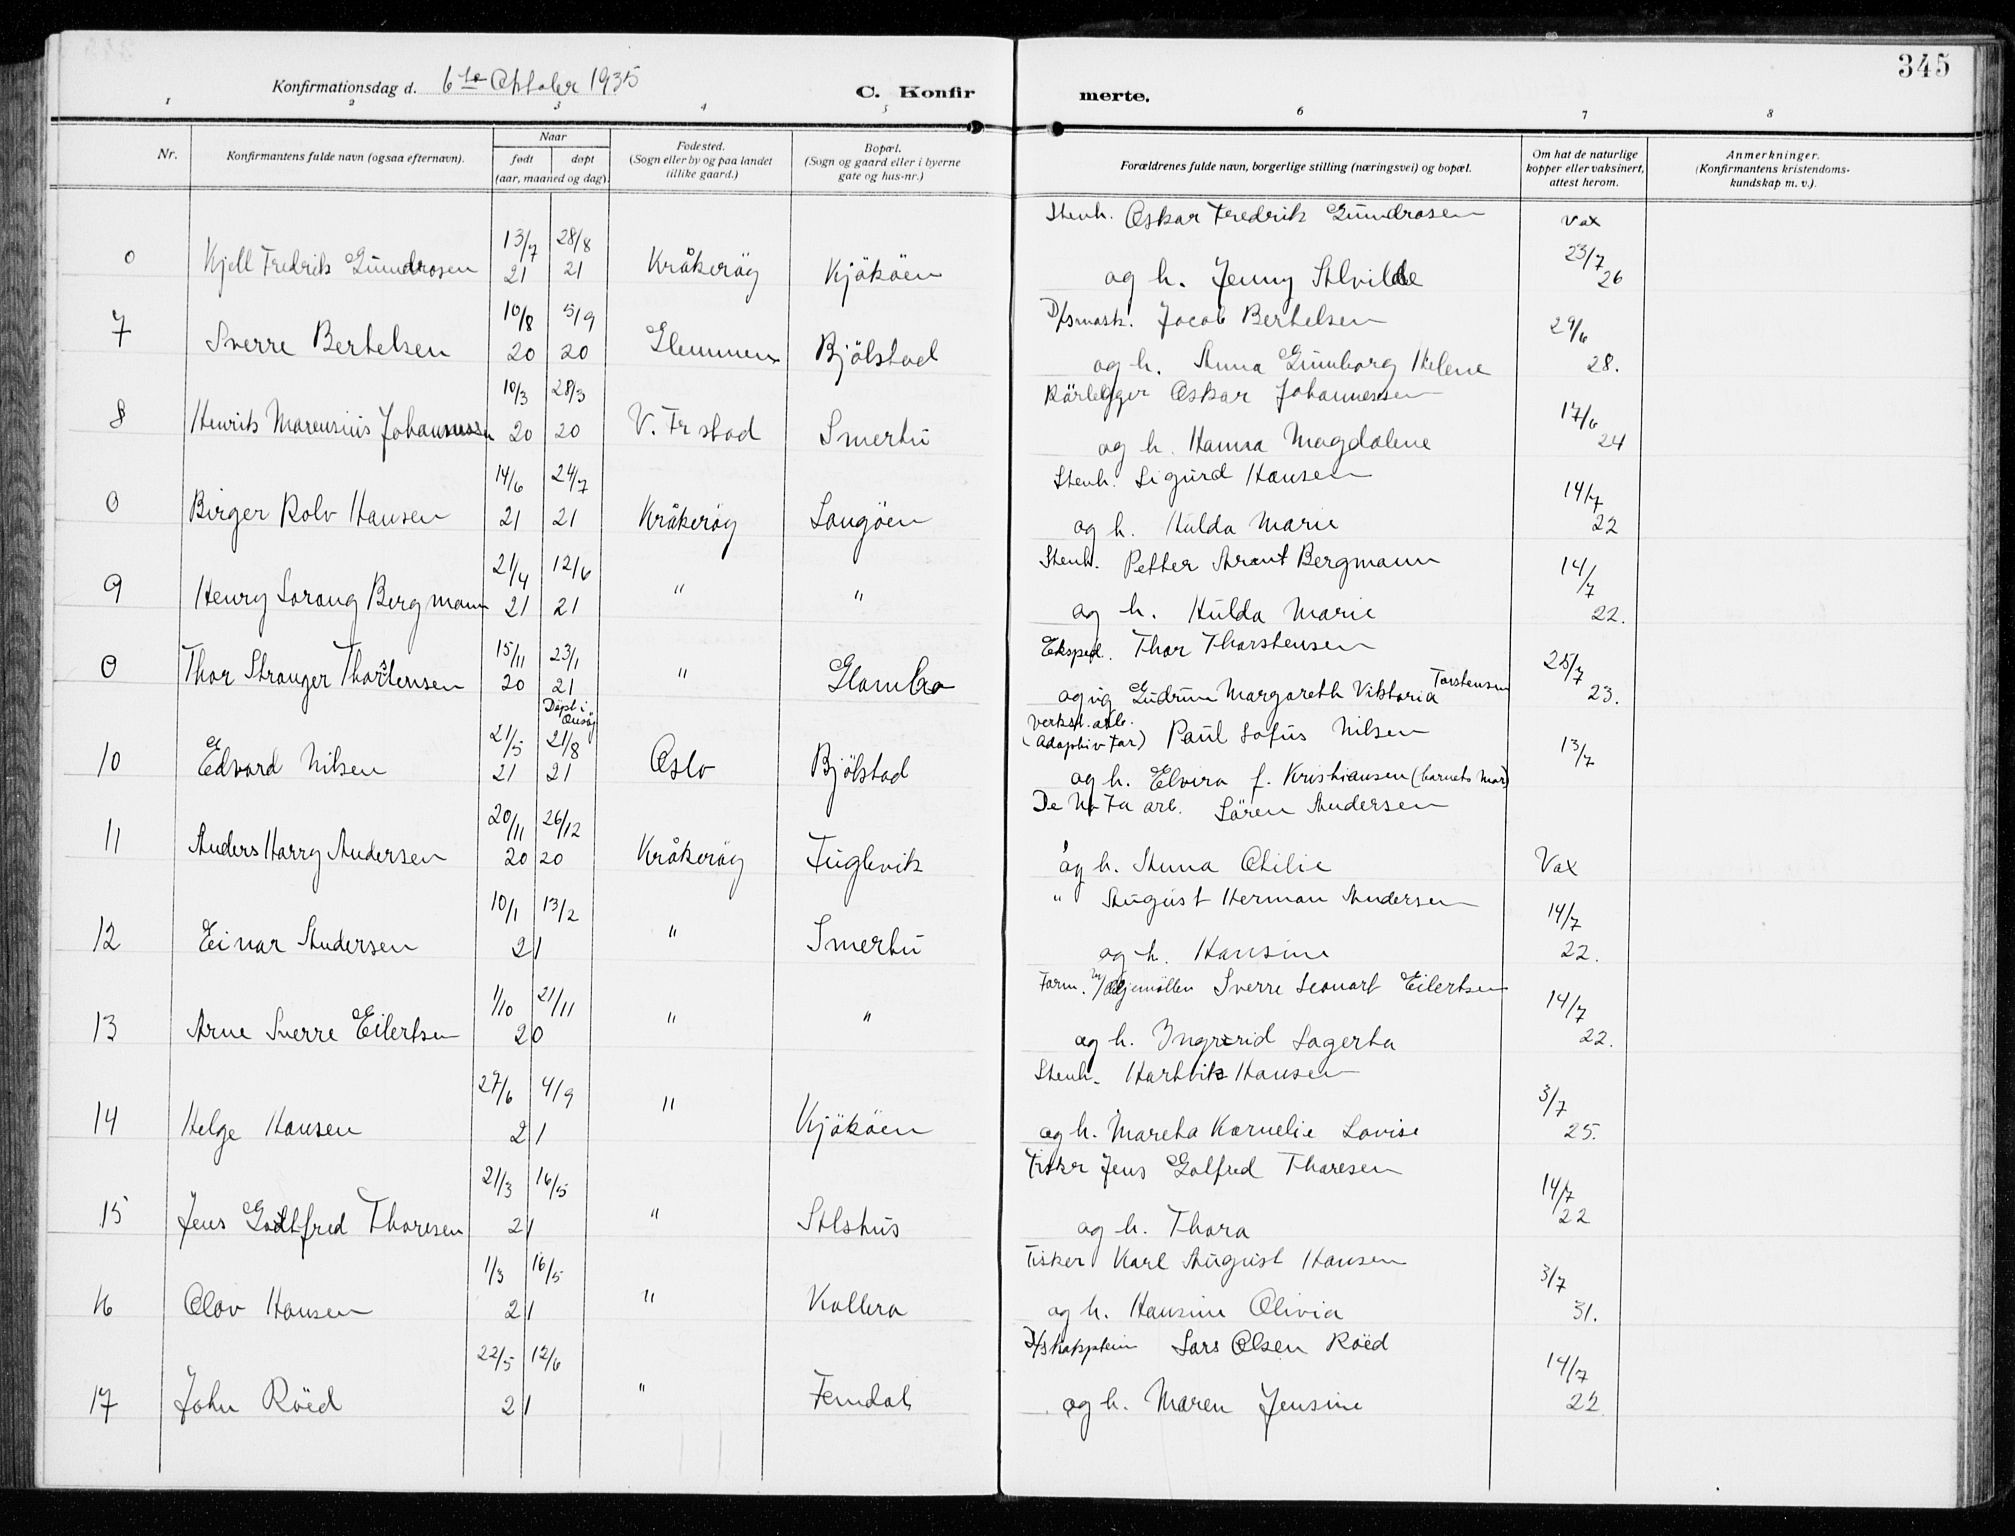 345
Konfirmationsdag d. 6te Oktober 1935
C. Konfirmerte.
1 2 3 4 5 6 7 8
Nr.
Konfirmantens fulde navn (ogsaa efternavn).
Naar
født døpt
(aar, maaned og dag).
Fødested.
(Sogn eller by og paa landet
tillike gaard.)
Bopæl.
(Sogn og gaard eller i byerne
gate og hus-nr.)
Forældrenes fulde navn, borgerlige stilling (næringsvei) og bopæl.
Om hat de naturlige
kopper eller vaksinert,
attest herom.
Anmerkninger.
(Konfirmantens kristendoms-
kundskap m. v.).
Stenh. Oskar Fredrik Gundrosen Vax
13/7 28/8 23/7
0 Kjell Fredrik Gundrosen 21 21 Kråkeröy Kjököen og h. Jenny Alvilde 26
10/8 5/9 D/smask. Jacob Bertelsen 29/6
7 Sverre Bertelsen 20 20 Glemmen Bjölstad og h. Anna Gunborg Helene 28.
10/3 28/3 Rörlegger Oskar Johannessen 17/6
8 Henrik Marensius Johannessen 20 20 V. Fr stad Smertu og h. Hanna Magdalene 24
14/6 24/7 Stenh. Sigurd Hansen 14/7
0 Birger Rolv Hansen 21 21 Kråkeröy Langöen og h. Hulda Marie 22
21/4 12/6 Stenh. Petter Arant Bergmann 14/7
9 Henry Sorang Bergmann 21 21 " " og h. Hulda Marie 22.
15/11 23/1 Eksped. Thor Thorstensen 25/7
0 Thor Stranger Thorstensen 20 21 " Glombo og ug Gudrun Margareth Viktoria Torstensen 23.
Döpt i Onsöy
21/5 21/8 Verkst. arb. (Adoptiv Far) Paul Sofus Nilsen 13/7
10 Edvard Nilsen 21 21 Oslo Bjölstad og h. Elvira f. Kristiansen (barnets mor)
20/11 26/12 De No Fa arb. Sören Andersen
11 Anders Harry Andersen 20 20 Kråkeröy Fuglevik og h. Anna Otilie Vax
10/1 13/2 " August Herman Andersen 14/7
12 Einar Andersen 21 " Smertu og h. Hansine 22.
1/10 21/11 Form. v/Oljemöllen Sverre Leonart Eilertsen 14/7
13 Arne Sverre Eilertsen 20 " " og h. Ingrid Lagerta 22.
27/6 4/9 Stenh. Hartvik Hansen 3/7
14 Helge Hansen 21 " Kjököen og h. Mareta Kornelie Lovise 25.
21/3 16/5 Fisker Jens Golfred Thoresen 14/7
15 Jens Godtfred Thoresen 21 " Alshus og h. Thora 22
1/3 16/5 Fisker Karl August Hansen 3/7
16 Olav Hansen 21 " Kallera og h. Hansine Olivia 31.
22/5 12/6 D/skaptein Lars Olsen Röed 14/7
17 John Röed 21 " Femdal og h. Maren Jensine 22